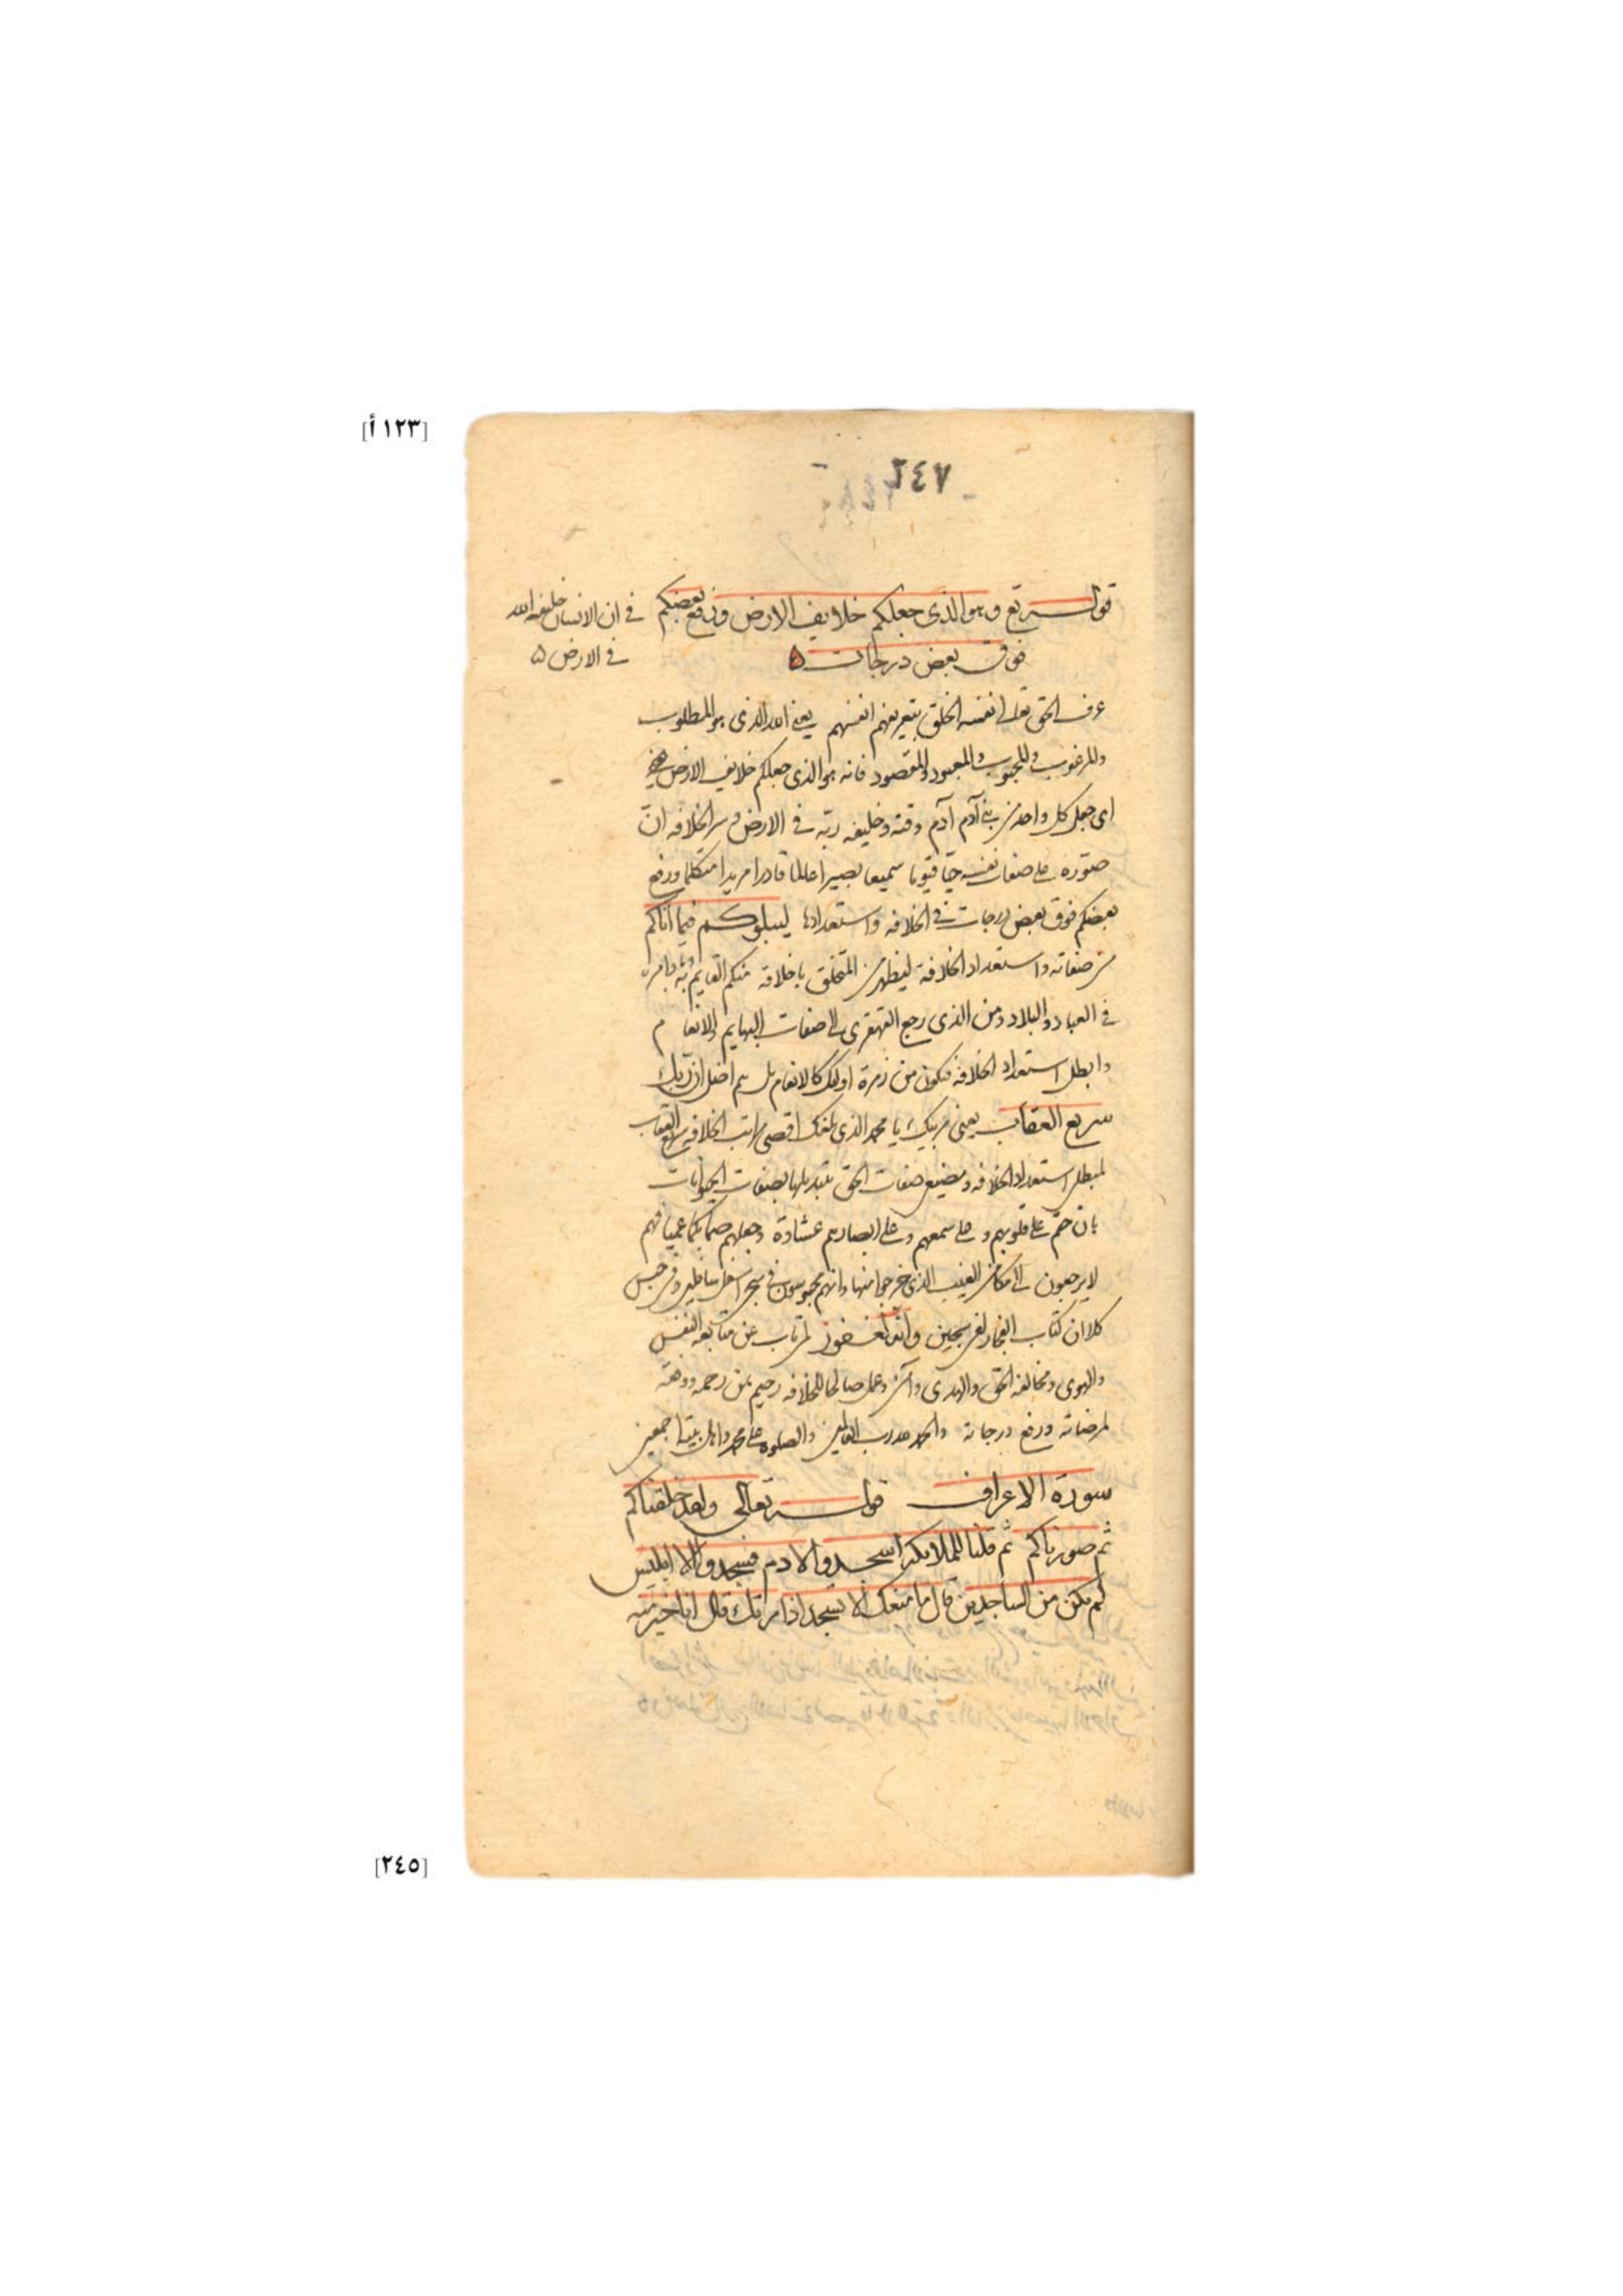 [١٢٣ أ]
٢٤٧
قوله تع وهو الذى جعلكم خلايف الارض ورفع بعضكم
فوق بعض درجات ۵
فى ان الانسان خليفة الله
فى الارض ۵
عرف الحق تعلى نفسه الخلق بتعريفهم انفسهم يعنى الله الذى هو المطلوب
والمرغوب والمحبوب والمعبود والمقصود فانه هو الذى جعلكم خلايف الارض
اى جعل كل واحد من بنى آدم آدم وقته وخليفه ربّه فى الارض و سر الخلافه ان
صوّره على صفات نفسه حيّا قيّوما سميعا بصيرا عالما قادرا مريدا متكلما ورفع
بعضكم فوق بعض درجات فى الخلافه واستعدادها ليبلوكم فيما اتاكم
من صفاته واستعداد الخلافة ليظهر من المتخلق باخلاقه منكم القايم به وبامره
فى العباد والبلاد ومن الذى رجع القهقرى الى صفات البهايم والانعام
وابطل استعداد الخلافه فيكون من زمرة اولئك كالانعام بل هم اضل ان ربك
سريع العقاب يعنى مربيك يا محمد الذى بلغك اقصى مراتب الخلافه سريع العقاب
لمبطل استعداد الخلافه ومضيع صفات الحق بتبديلها بصفات الحيوانات
بان ختم على قلوبهم وعلى سمعهم وعلى ابصارهم غشاوة وجعلهم صما بكما عميا فهم
لا يرجعون الى مكامن الغيب الذى خرجوا منها وانهم محبوسون فى سجن اسفل سافلين وفى حبس
كلا ان كتاب الفجار لفى سجين وانه لغفور لمن تاب عن متابعه النفس
والهوى ومخالفه الحق والهدى وآمن وعمل صالحا للخلافه رحيم بمن رحمه ووفقه
لمرضاته ورفع درجاته والحمد لله رب العالمين والصلوه على محمد واهل بيته اجمعين
سورة الاعراف قوله تعالى ولقد خلقناكم
ثم صورناكم ثم قلنا للملايكة اسجدوا لادم فسجدوا الا ابليس
لم يكن من الساجدين قال ما منعك الا تسجد اذ امرتك قال انا خير منه
[٢٤٥]